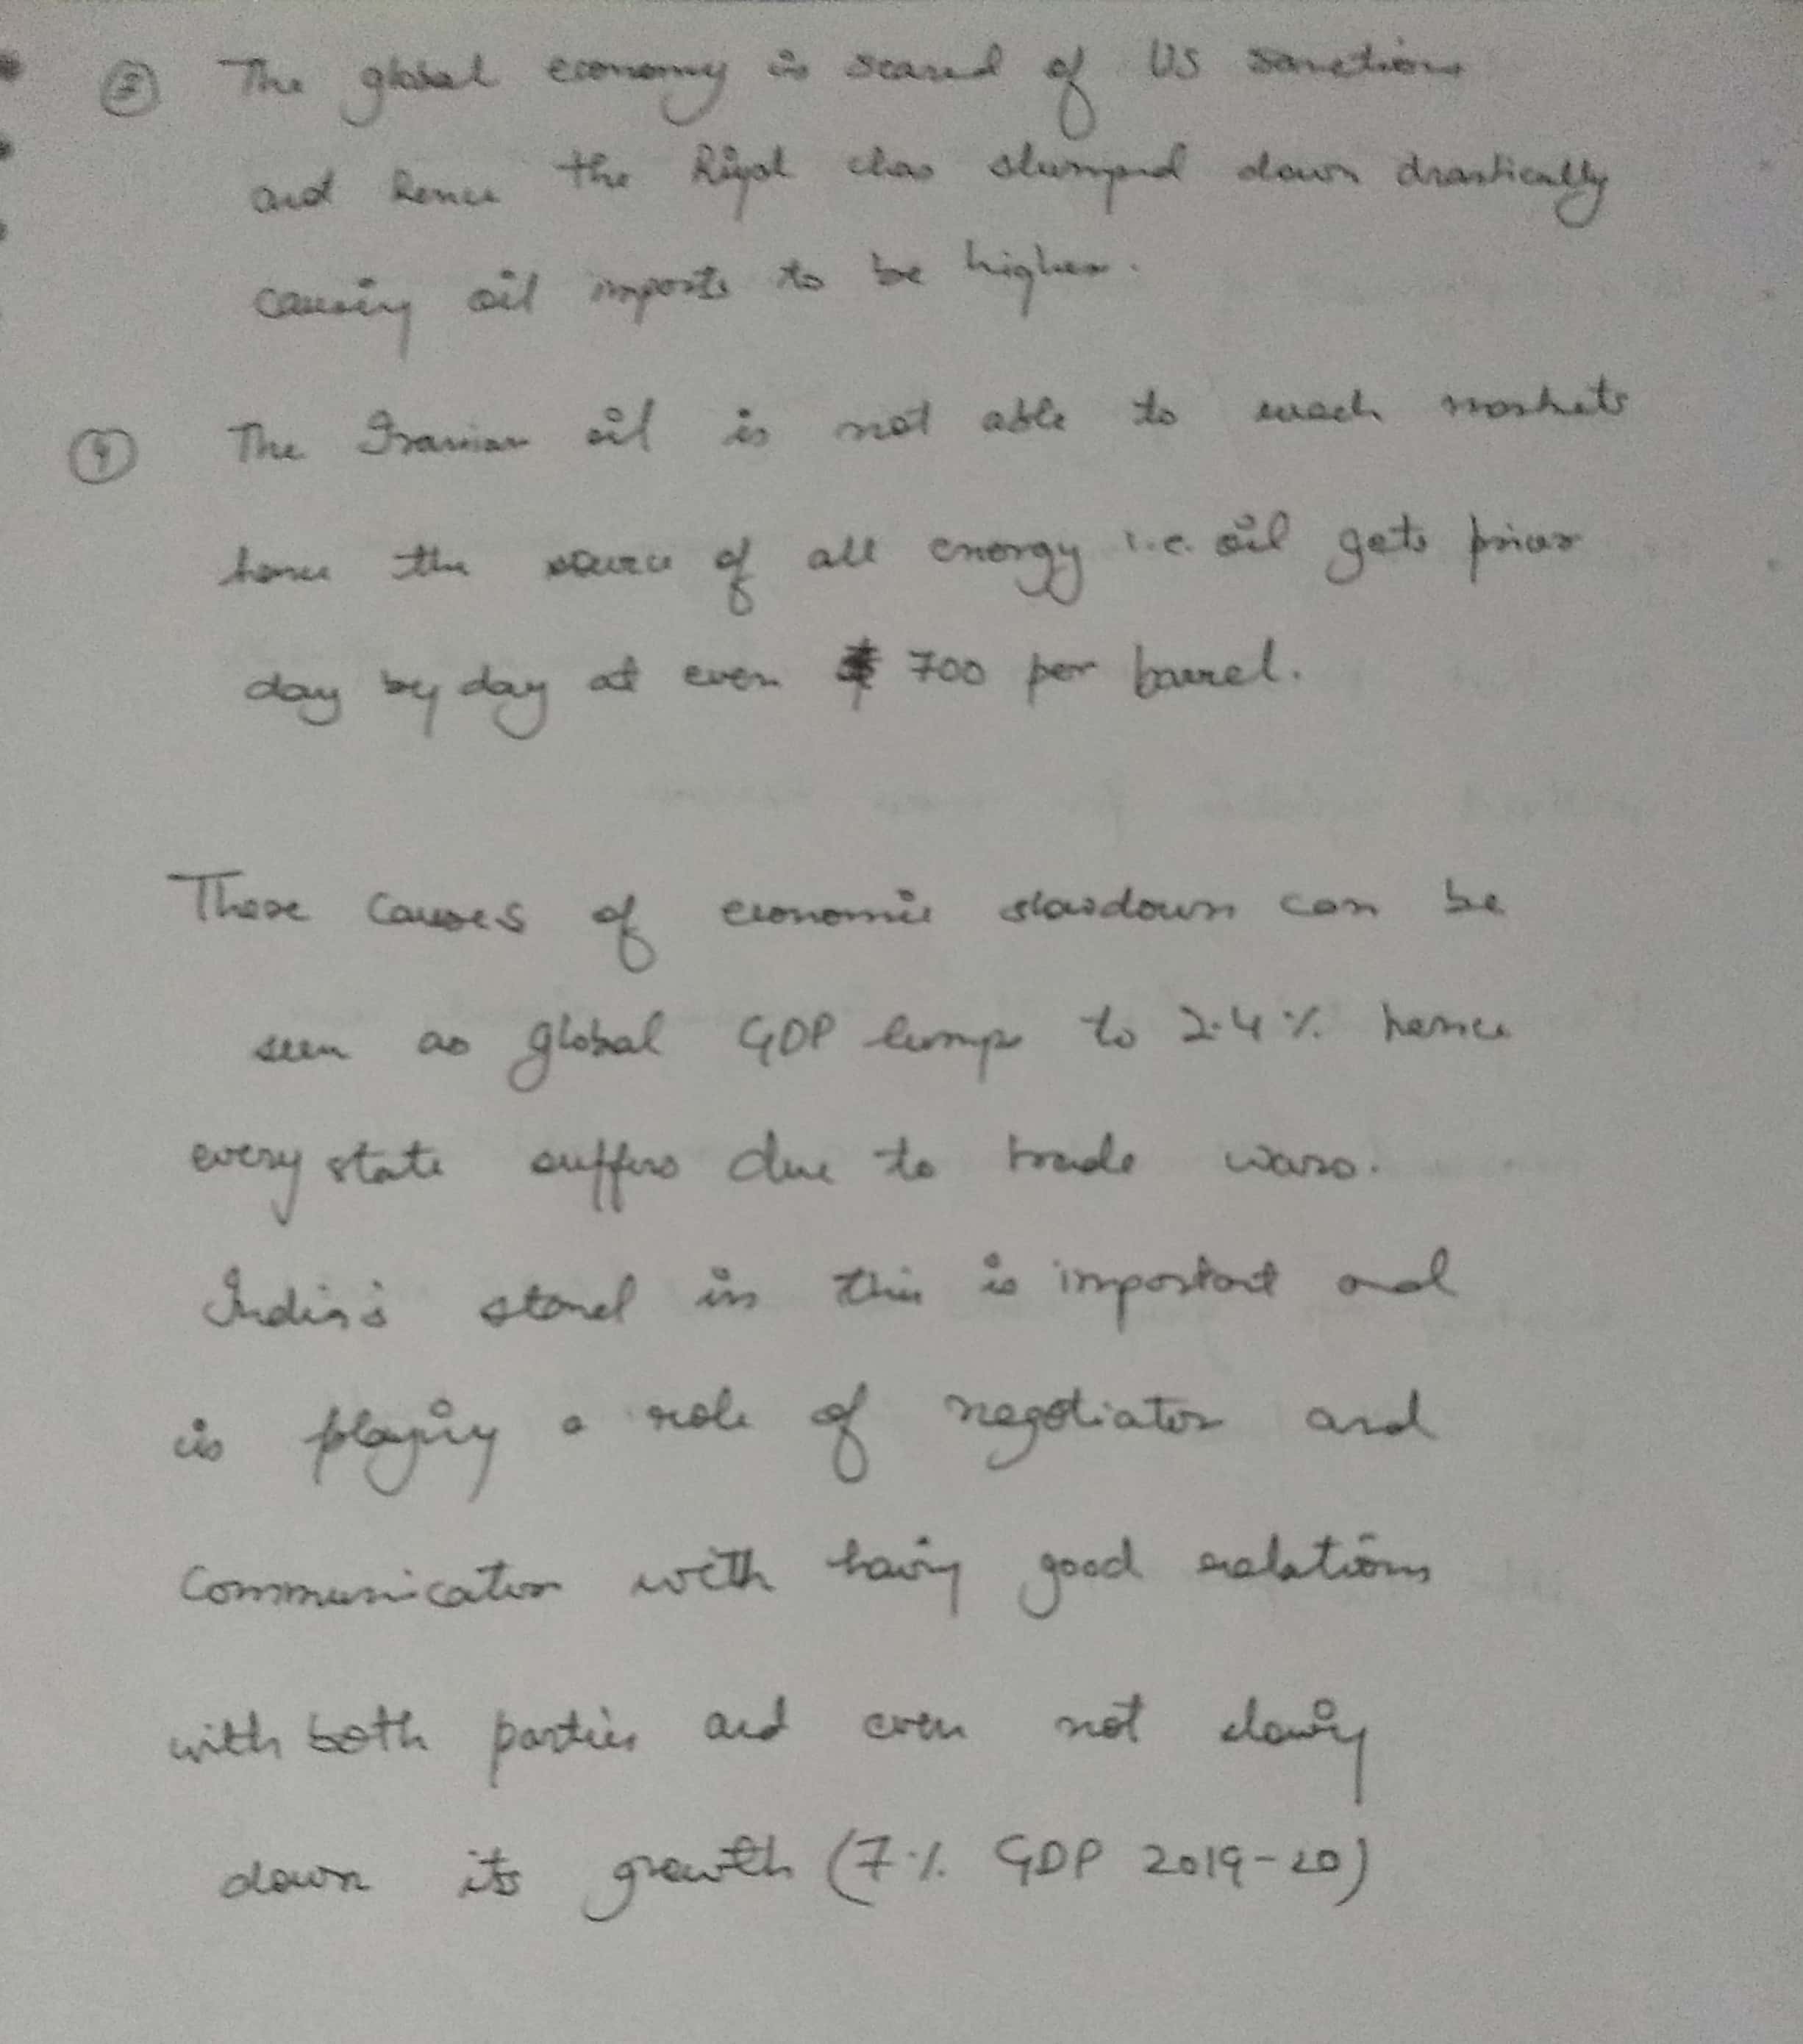 ③ The global economy is scared of US sanctions
and hence the Riyal has slumped down drastically
causing oil imports to be higher.
④ The Iranian oil is not able to reach markets
hence the source of all energy i.e. oil gets
day by day at even $ 700 per barrel.
These causes of economic slowdown can be
seen as global GDP lumps to 2.4% hence
every state suffers due to trade wars.
India's stand in this is important and
is playing a role of negotiator and
communicator with having good relations
with both parties and even not slowing
down its growth (7% GDP 2019-20)